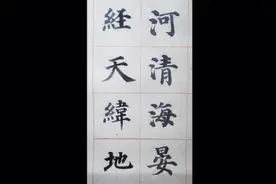 河清海晏
経天緯地